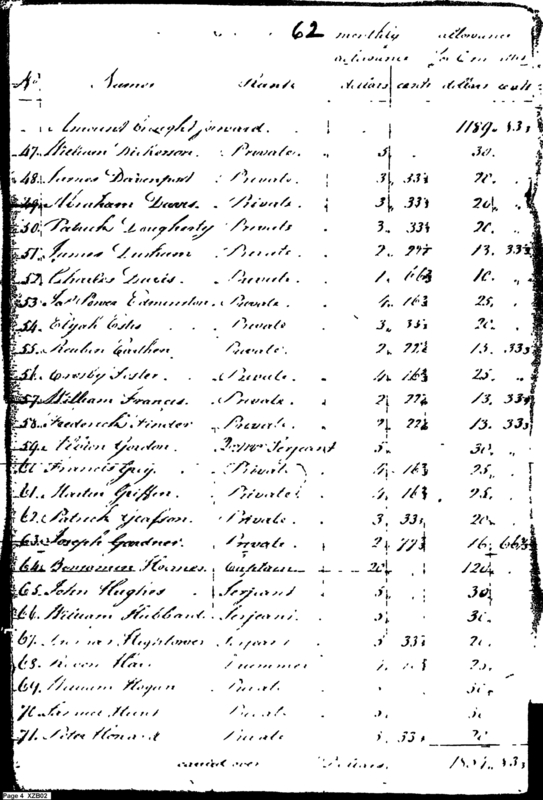 62 monthly allowance
allowance for 6 months
No Names Rank dollars cents dollars cents
Amount brought forward. 1189. 83⅓
47. William Dickerson. Private. 5. 30.
48. James Davenport Private. 3. 33⅓ 20.
49. Abraham Davis. Private. 3. 33⅓ 20.
50. Patrick Dougherty Private 3. 33⅓ 20.
51. James Durham Private 2. 13. 33⅓
52. Charles Davis. Private. 1. 66⅔ 10.
53. Power Edmundson. Private. 4. 16⅔ 25.
54. Elijah Estis Private. 3. 33⅓ 20.
55. Reuben Private. 2. 22⅓ 13. 33⅓
56. Crosby Foster Private. 4. 16⅔ 25.
57. William Francis. Private. 2. 22⅓ 13. 33⅓
58. Frederick Private. 2. 22⅓ 13. 33⅓
59. Gordon. Serjeant 5. 30.
60. Francis Guy. Private. 4. 16⅔ 25.
61. Martin Griffin. Private. 4. 16⅔ 25.
62. Patrick Private. 3. 33⅓ 20.
63. Joseph Gardner. Private. 2. 16. 66⅔
64. Holmes. Captain 20. 120.
65. John Hughes. Serjeant 5. 30
66. William Hubbard. Serjeant. 5. 30.
67. Hightower Serjeant 3 33⅓ 20.
68. Drummer 25.
69. William Hogan Private 30.
70. Hunt Private 5. 30
71. Peter Howard. Private 3. 33⅓ 20
carried over Dollars. 83⅓
Page 4 XZB02